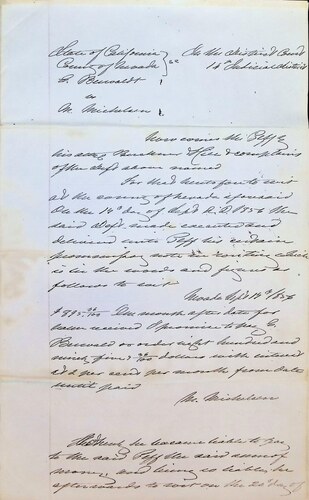 State of California } In the District Court
County of Nevada } ss 14th Judicial District
G. Beuvaldt
vs
M. Michelsen
Now comes the Plff by
his atty & complains
of the deft above named
For that heretofore to wit
at the county of Nevada aforesaid
On the day of Sept A.D. 1856 the
said deft. made executed and
delivered unto Plff his certain
promissory note in writing which
is in the words and figures as
follows to wit
Nevada Sept 1856
$895 /100 One month after date for
value received I promise to pay G.
or order eight hundred and
ninety five /100 dollars with interest
at per cent per month from date
until paid
M. Michelsen
he became liable to pay
to the said Plff the said sum of
money, and being so liable he
afterwards to wit on the day of